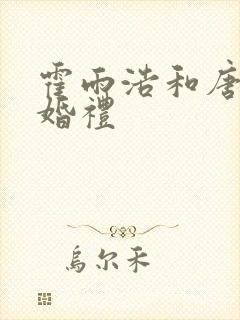 霍雨浩和唐
婚禮
烏尔禾